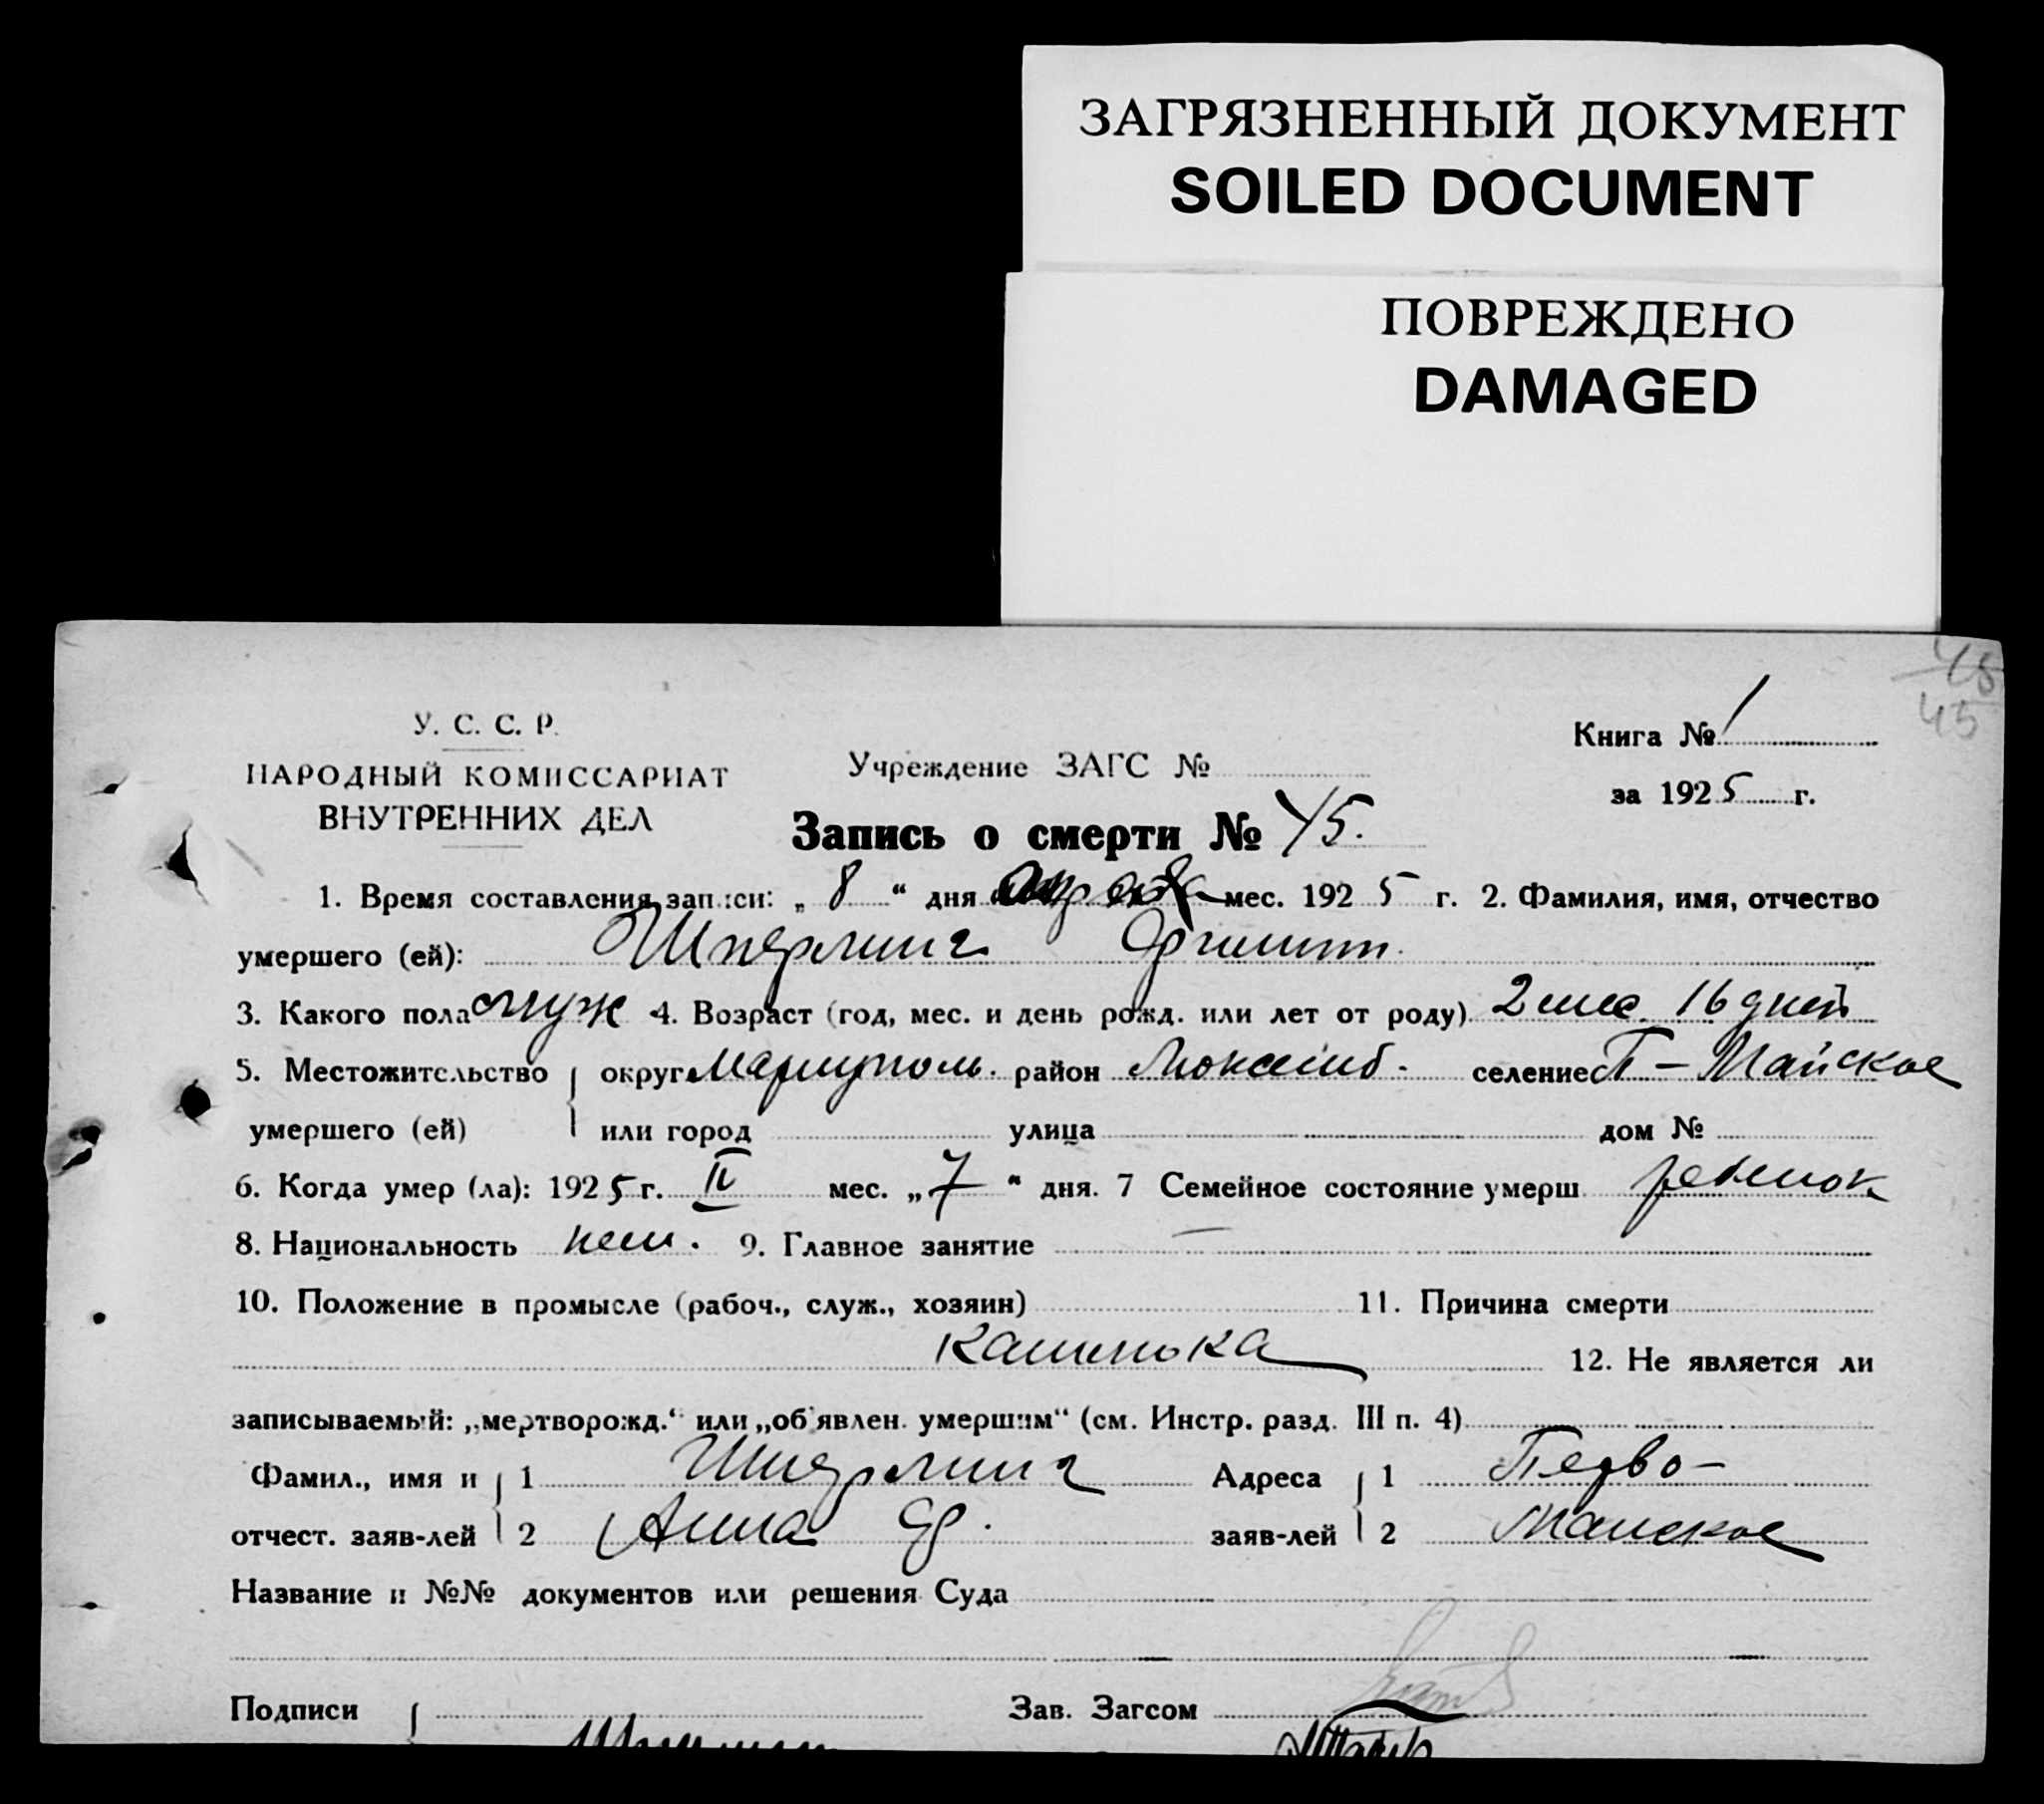 ЗАГРЯЗНЕННЫЙ ДОКУМЕНТ
SOILED DOCUMENT
ПОВРЕЖДЕНО
DAMAGED
45
45
У. С. С. Р.
НАРОДНЫЙ КОМИССАРИАТ
ВНУТРЕННИХ ДЕЛ
Учреждение ЗАГС №
Книга № 1
за 1925 г.
Запись о смерти № 45.
1. Время составления записи: „ 8 “ дня мес. 1925 г. 2. Фамилия, имя, отчество
умершего (ей): Шперлинг
3. Какого пола муж 4. Возраст (год, мес. и день рожд. или лет от роду) 2 мес. 16 дней
5. Местожительство { округ Мариуполь. район Люксемб. селение П-Майское
умершего (ей) или город улица дом №
6. Когда умер (ла): 1925 г. мес. „ 7 “ дня. 7 Семейное состояние умерш ребенок
8. Национальность нем. 9. Главное занятие —
10. Положение в промысле (рабоч., служ., хозяин) 11. Причина смерти
12. Не является ли
записываемый: „мертворожд.“ или „об'явлен. умершим“ (см. Инстр. разд. III п. 4)
Фамил., имя и { 1 Шперлинг Адреса { 1 Перво-
отчест. заяв-лей 2 Анна заяв-лей 2 Майское
Название и №№ документов или решения Суда
Подписи { Зав. Загсом